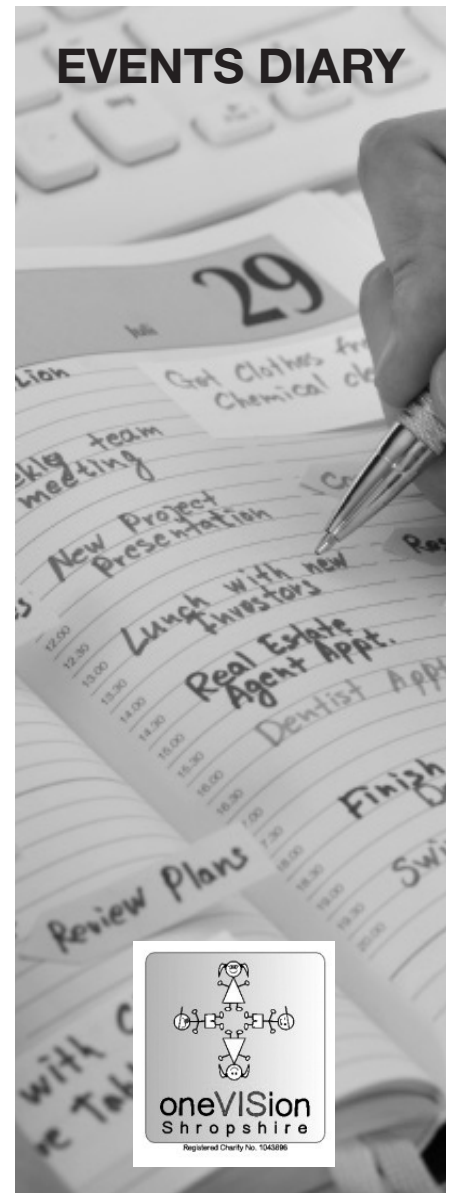 EVENTS DIARY
29
Juli
Lion
Got Clothes
Chemical
team
meeting
New Project
Presentation
Lunch with new
Investors
Real Estate
Agent Appt.
Dentist Appt
Finish
12.00
12.30
13.00
13.30
14.00
14.30
15.00
15.30
16.00
16.30
18.00
18.30
19.00
19.30
20.00
Review Plans
with
oneVISion
Shropshire
Registered Charity No. 1043896